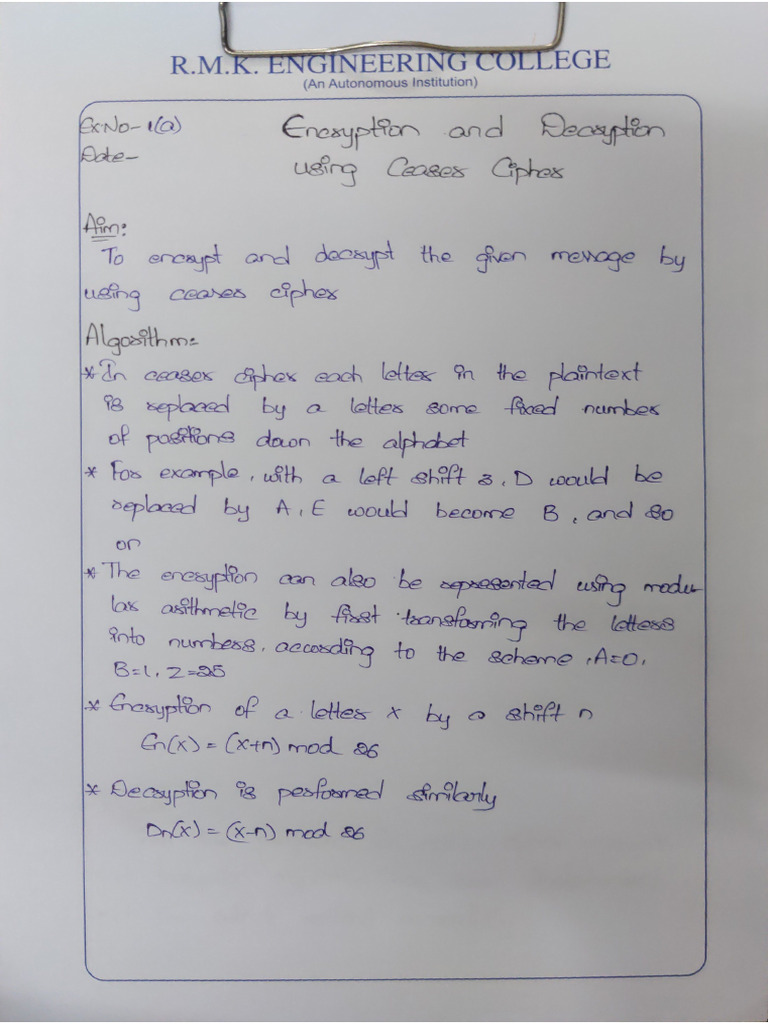 R.M.K. ENGINEERING COLLEGE
(An Autonomous Institution)
Ex.No- 1(a)
Encryption and Decryption
Date-
using Ceaser Cipher
Aim:
To encrypt and decrypt the given message by
using ceaser cipher
Algorithm:
* In ceaser cipher each letter in the plaintext
is replaced by a letter some fixed number
of positions down the alphabet
* For example, with a left shift 3, D would be
replaced by A, E would become B, and so
on
* The encryption can also be represented using modu
lar arithmetic by first transforming the letters
into numbers, according to the scheme, A=0,
B=1, Z=25
* Encryption of a letter x by a shift n
En(x) = (x+n) mod 26
* Decryption is performed similarly
Dn(x) = (x-n) mod 26